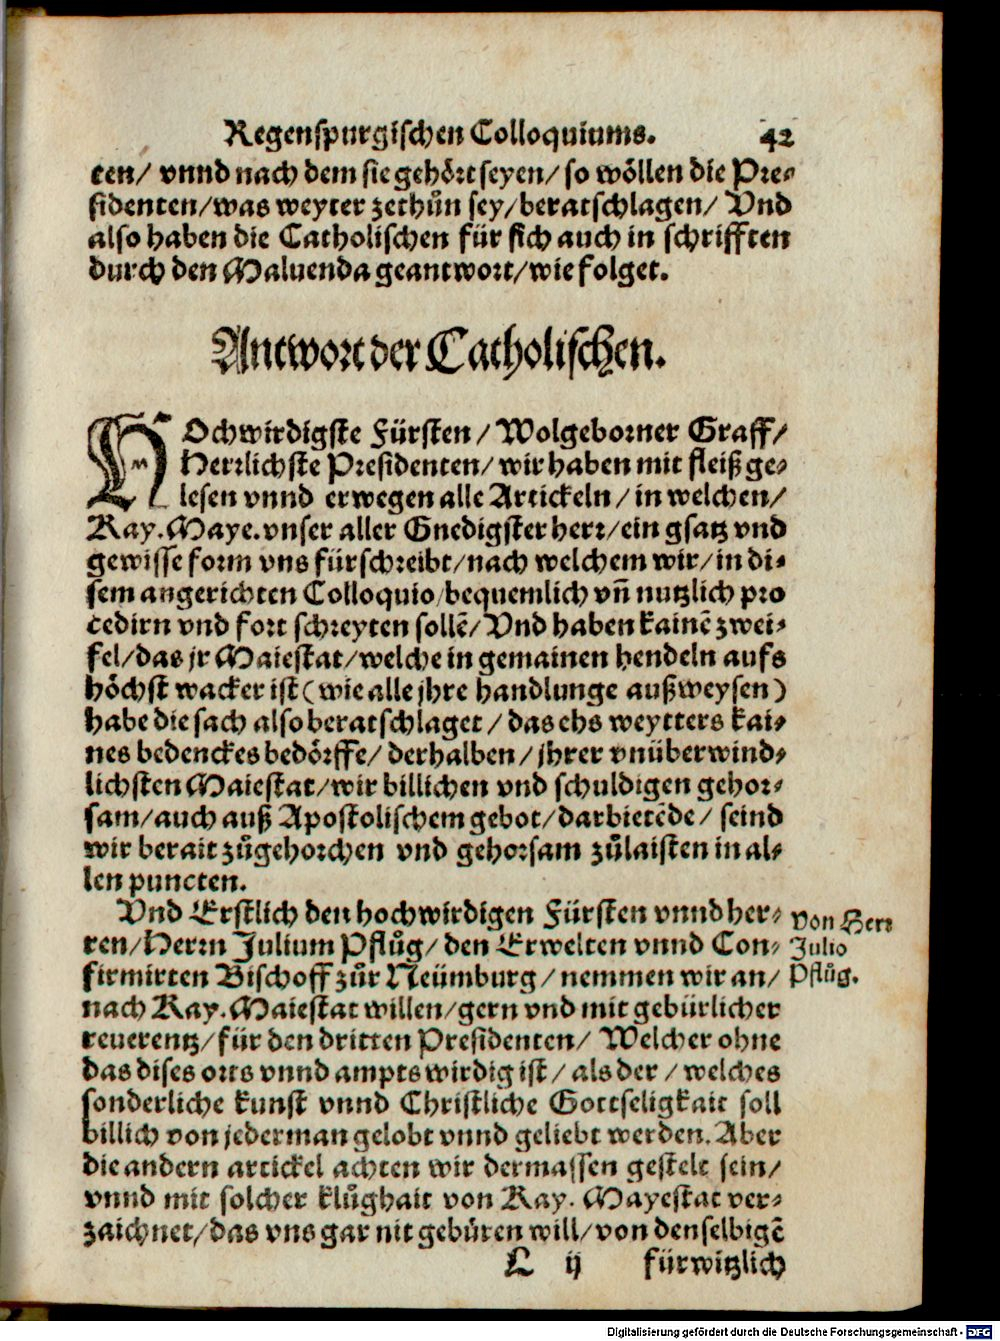 Regenspurgischen Colloquiums. 42
ten/ vnnd nach dem sie gehört seyen/ so wöllen die Pre-
sidenten/ was weyter zethůn sey/ beratschlagen/ Vnd
also haben die Catholischen für sich auch in schrifften
durch den Maluenda geantwort/ wie folget.
Antwort der Catholischen.
HOchwirdigste Fürsten/ Wolgeborner Graff/
Herrlichste Presidenten/ wir haben mit fleiß ge-
lesen vnnd erwegen alle Artickeln/ in welchen/
Kay. Maye. vnser aller Gnedigster herr/ ein gsatz vnd
gewisse form vns fürschreibt/ nach welchem wir/ in di-
sem angerichten Colloquio/ bequemlich vñ nutzlich pro
cedirn vnd fort schreyten sollẽ/ Vnd haben kainẽ zwei-
fel/ das jr Maiestat/ welche in gemainen hendeln aufs
höchst wacker ist (wie alle jhre handlunge außweysen)
habe die sach also beratschlaget/ das ehs weytters kai-
nes bedenckes bedörffe/ derhalben/ jhrer vnüberwind-
lichsten Maiestat/ wir billichen vnd schuldigen gehor-
sam/ auch auß Apostolischem gebot/ darbietẽde/ seind
wir berait zůgehorchen vnd gehorsam zůlaisten in al-
len puncten.
Vnd Erstlich den hochwirdigen Fürsten vnnd her-
ren/ Herrn Julium Pflůg/ den Erwelten vnnd Con-
firmirten Bischoff zůr Neümburg/ nemmen wir an/
nach Kay. Maiestat willen/ gern vnd mit gebürlicher
reuerentz/ für den dritten Presidenten/ Welcher ohne
das dises orts vnnd ampts wirdig ist/ als der/ welches
sonderliche kunst vnnd Christliche Gottseligkait soll
billich von jederman gelobt vnnd geliebt werden. Aber
die andern artickel achten wir dermassen gestelt sein/
vnnd mit solcher klůghait von Kay. Mayestat ver-
zaichnet/ das vns gar nit gebüren will/ von denselbigẽ
von Herr
Julio
Pflůg.
L ij fürwitzlich
Digitalisierung gefördert durch die Deutsche Forschungsgemeinschaft - DFG